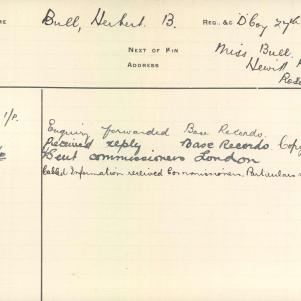 RE Bull, Herbert B. REG., &C D Coy 27th
NEXT OF KIN Miss Bull,
ADDRESS Hewitt
Rose
1/P. Enquiry forwarded Base Records.
Received reply Base Records Copy
Sent commissioners London
Cabled Information received Commissioners. Particulars